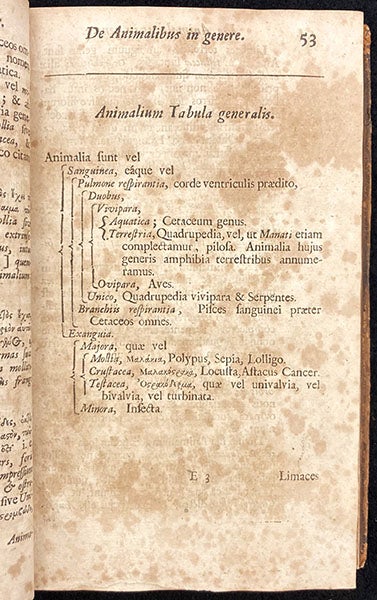 De Animalibus in genere. 53
Animalium Tabula generalis.
Animalia sunt vel
Sanguinea, eáque vel
Pulmone respirantia, corde ventriculis prædito,
Duobus,
Vivipara,
Aquatica; Cetaceum genus.
Terrestria, Quadrupedia, vel, ut Manati etiam
complectamur, pilosa. Animalia hujus
generis amphibia terrestribus annume-
ramus.
Ovipara, Aves.
Unico, Quadrupedia vivipara & Serpentes.
Branchiis respirantia, Pisces sanguinei præter
Cetaceos omnes.
Exanguia.
Majora, quæ vel
Mollia, μαλάκια, Polypus, Sepia, Lolligo.
Crustacea, μαλακόστρακα, Locusta, Astacus Cancer.
Testacea, quæ vel univalvia, vel
bivalvia, vel turbinata.
Minora, Insecta.
E 3 Limaces